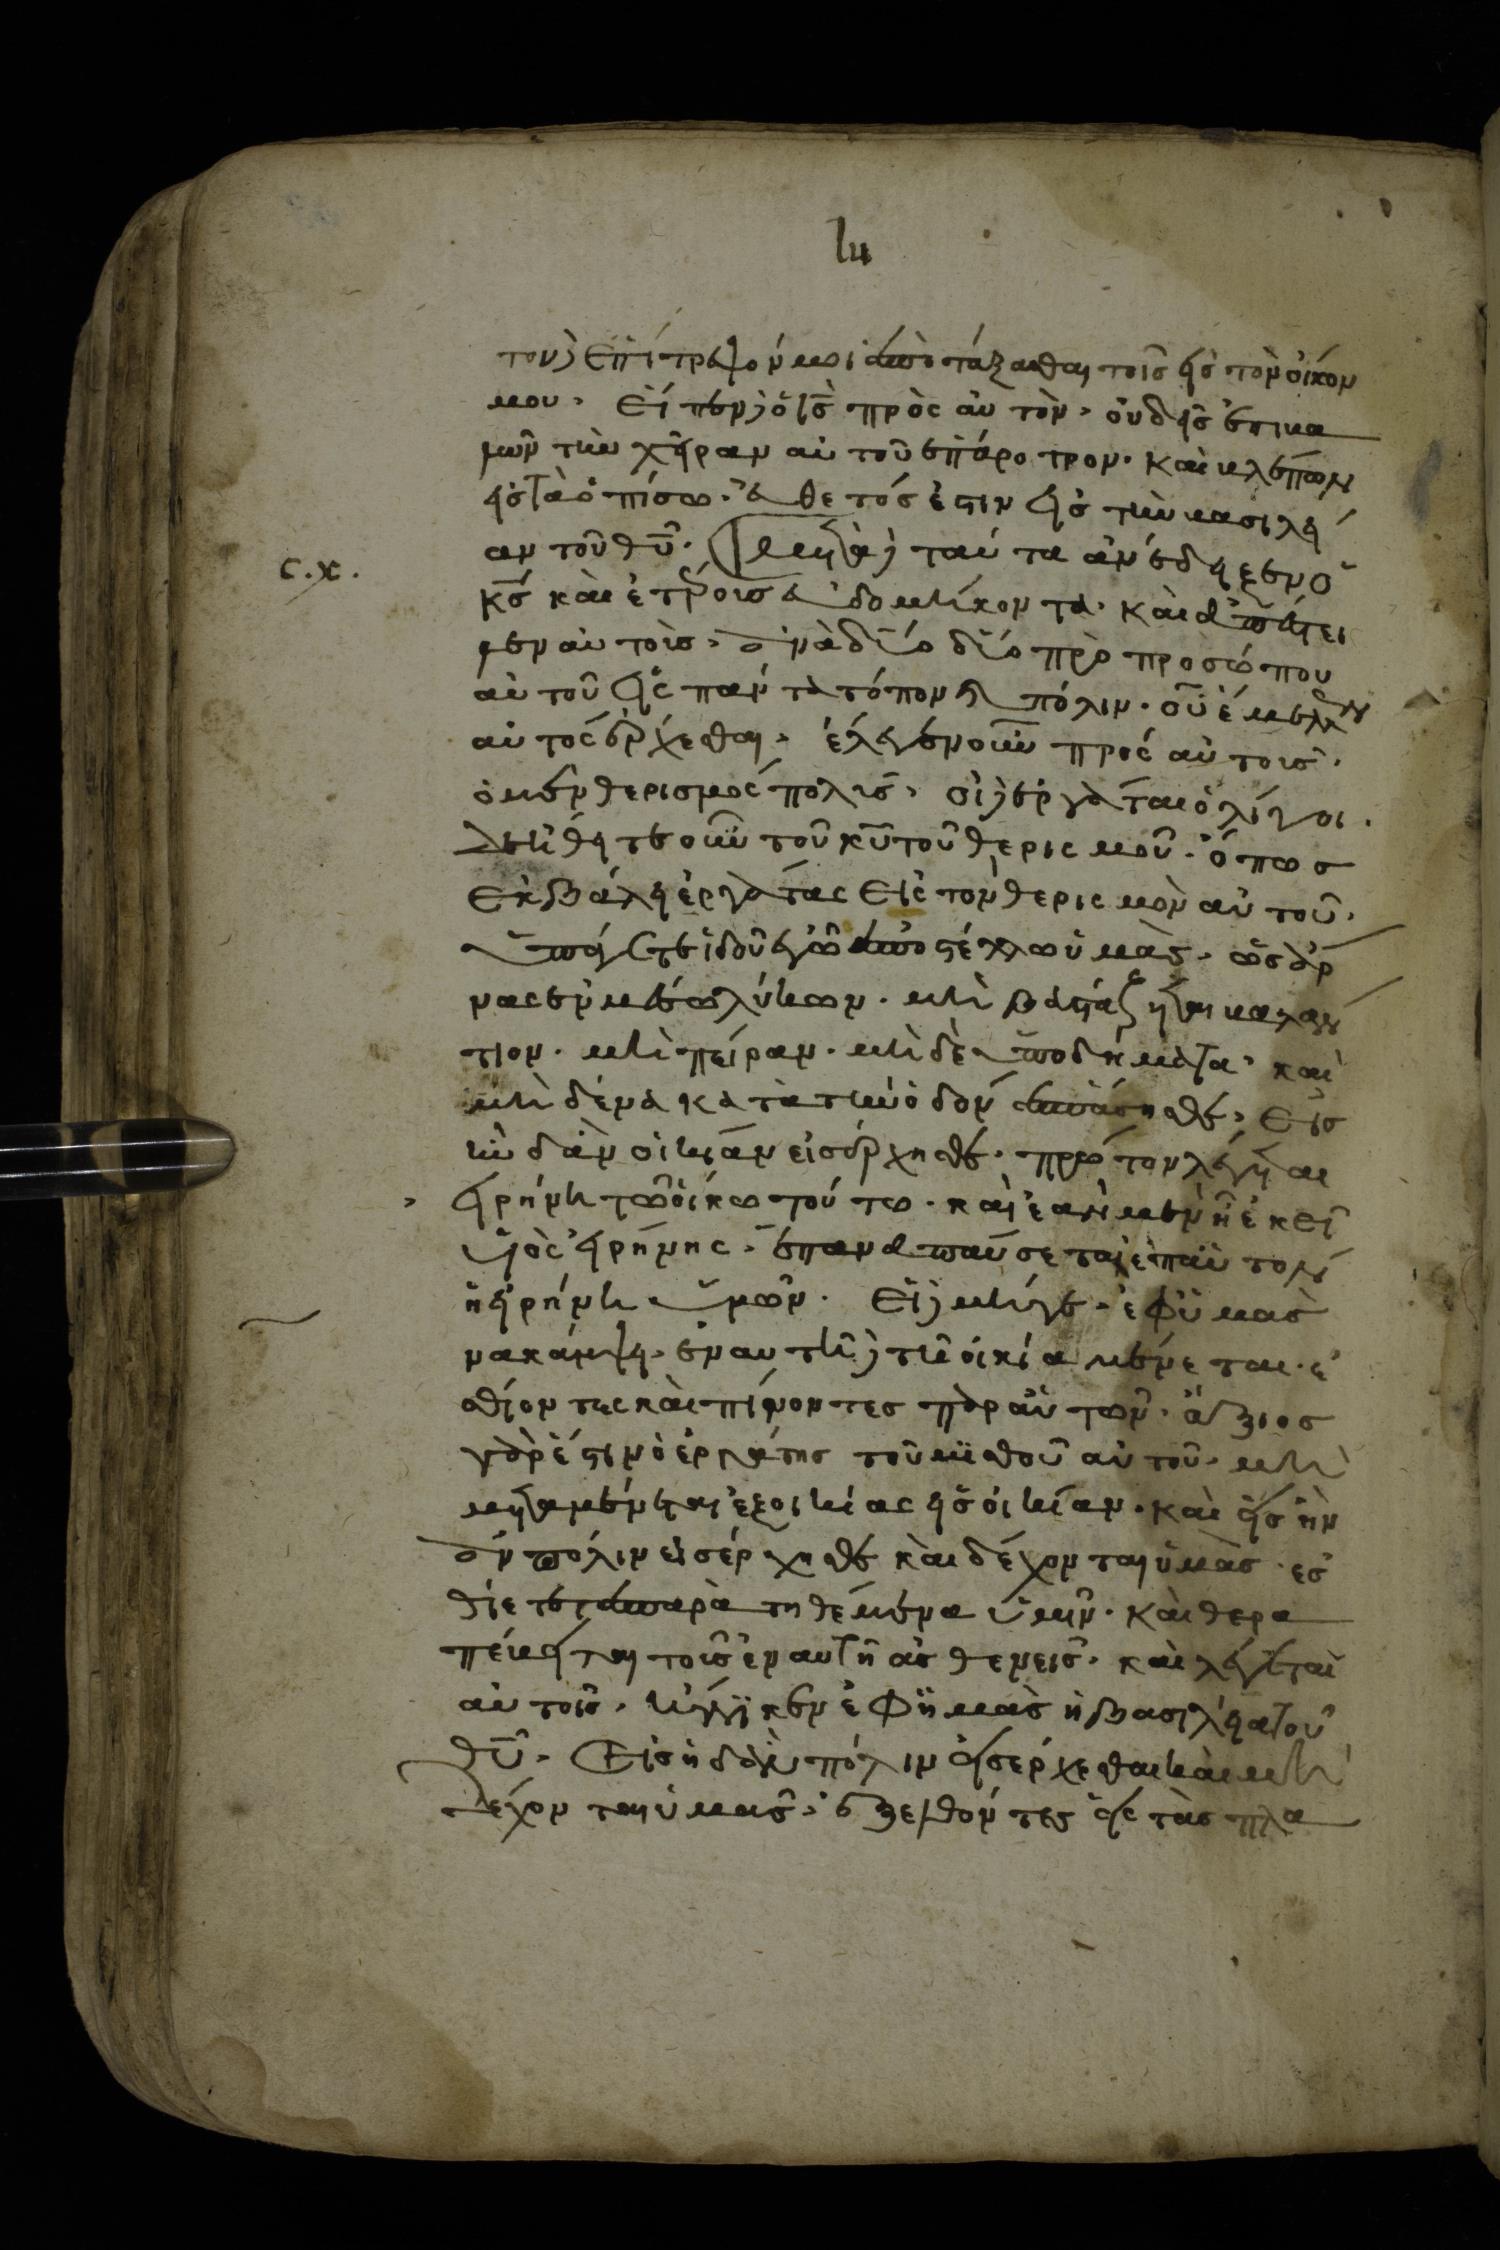 τον δὲ ἐπίτρεψόν μοι ἀποτάξασθαι τοῖς εἰς τὸν οἶκον
μου. εἶπεν δὲ ὁ ις πρὸς αὐτὸν. οὐδεὶς ἐπιβα
λὼν τὴν χεῖραν αὐτοῦ ἐπ άροτρον. καὶ βλέπων
εἰς τὰ ὀπίσω. εὔθετός ἐστιν εἰς τὴν βασιλεί
αν τοῦ θυ. Μετὰ δὲ ταῦτα ἀνέδειξεν ὁ
κς καὶ ἑτέροις ἑβδομήκοντα. καὶ ἀπέστει
λεν αὐτοὶς. ἀνὰ δύο δύο πρὸ προσώπου
αὐτοῦ εἰς πάντα τόπον καὶ πόλιν. οὗ ἔμελλεν
αὐτὸς ἔρχεσθαι. ἔλεγεν οὖν πρὸς αὐτοις.
ὁ μὲν θερισμὸς πολὺς. οἱ δὲ ἐργάται ὀλίγοι.
δεήθητε οὖν τοῦ κυ τοῦ θερισμοῦ. ὅπως
ἐκβάλῃ ἐργάτας εἰς τὸν θερισμὸν αὐτοῦ.
ὑπάγετε ἰδοῦ ἐγὼ ἀποστέλλω ὑμὰς. ὡς ἄρ
νας ἐν μέσω λύκων. μὴ βαστάζηται βαλάν
τιον. μὴ πείραν. μὴ δὲ ὑποδήματα. καὶ
μὴδένα κατὰ τὴν ὁδὸν ἀσπάσησθε. Εἰς
ἣν δ ἂν οἰκίαν εἰσέρχησθε. πρῶτον λέγεται
εἰρήνη τῶ οἴκω τούτω. καὶ ἐὰν μὲν ἦ ἐκεῖ
υἱὸς εἰρήνης. ἐπαναπαύσεται ἐπ αὐτὸν
ἡ εἰρήνη ὑμῶν. Εἰ δὲ μήγε. ἐφ ὑμὰς
ἀνακάμψει. ἐν αυτῆ δὲ τῆ οἰκία μένεται. ἐ
σθίοντες καὶ πίνοντες παρ αὐτῶν. ἄξιος
γὰρ ἐστιν ὁ ἐργάτης τοῦ μισθοῦ αὐτοῦ. μὴ
μεταμένεται ἐξ οικίας εἰς οἰκίαν. καὶ εἰς ἣν
ἂν πόλιν εἰσέρχησθε καὶ δέχονται ὑμὰς. ἐσ
θίετε τὰ παρατηθέμενα ὑμῖν. καὶ θερα
πεύεται τοὺς ἐν αυτῆ ἀσθενεις. καὶ λέγεται
αὐτοῖς. ἤγγικεν ἐφ ἡμὰς ἡ βασιλεία τοῦ
θυ. Εἰς ἣν δ ἂν πόλιν εἰσέρχεσθαι καὶ μὴ
δέχονται ὑμας. ἐξελθόντες εἰς τὰς πλα